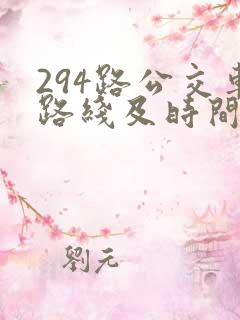 294路公交車
路綫及時間
劉元